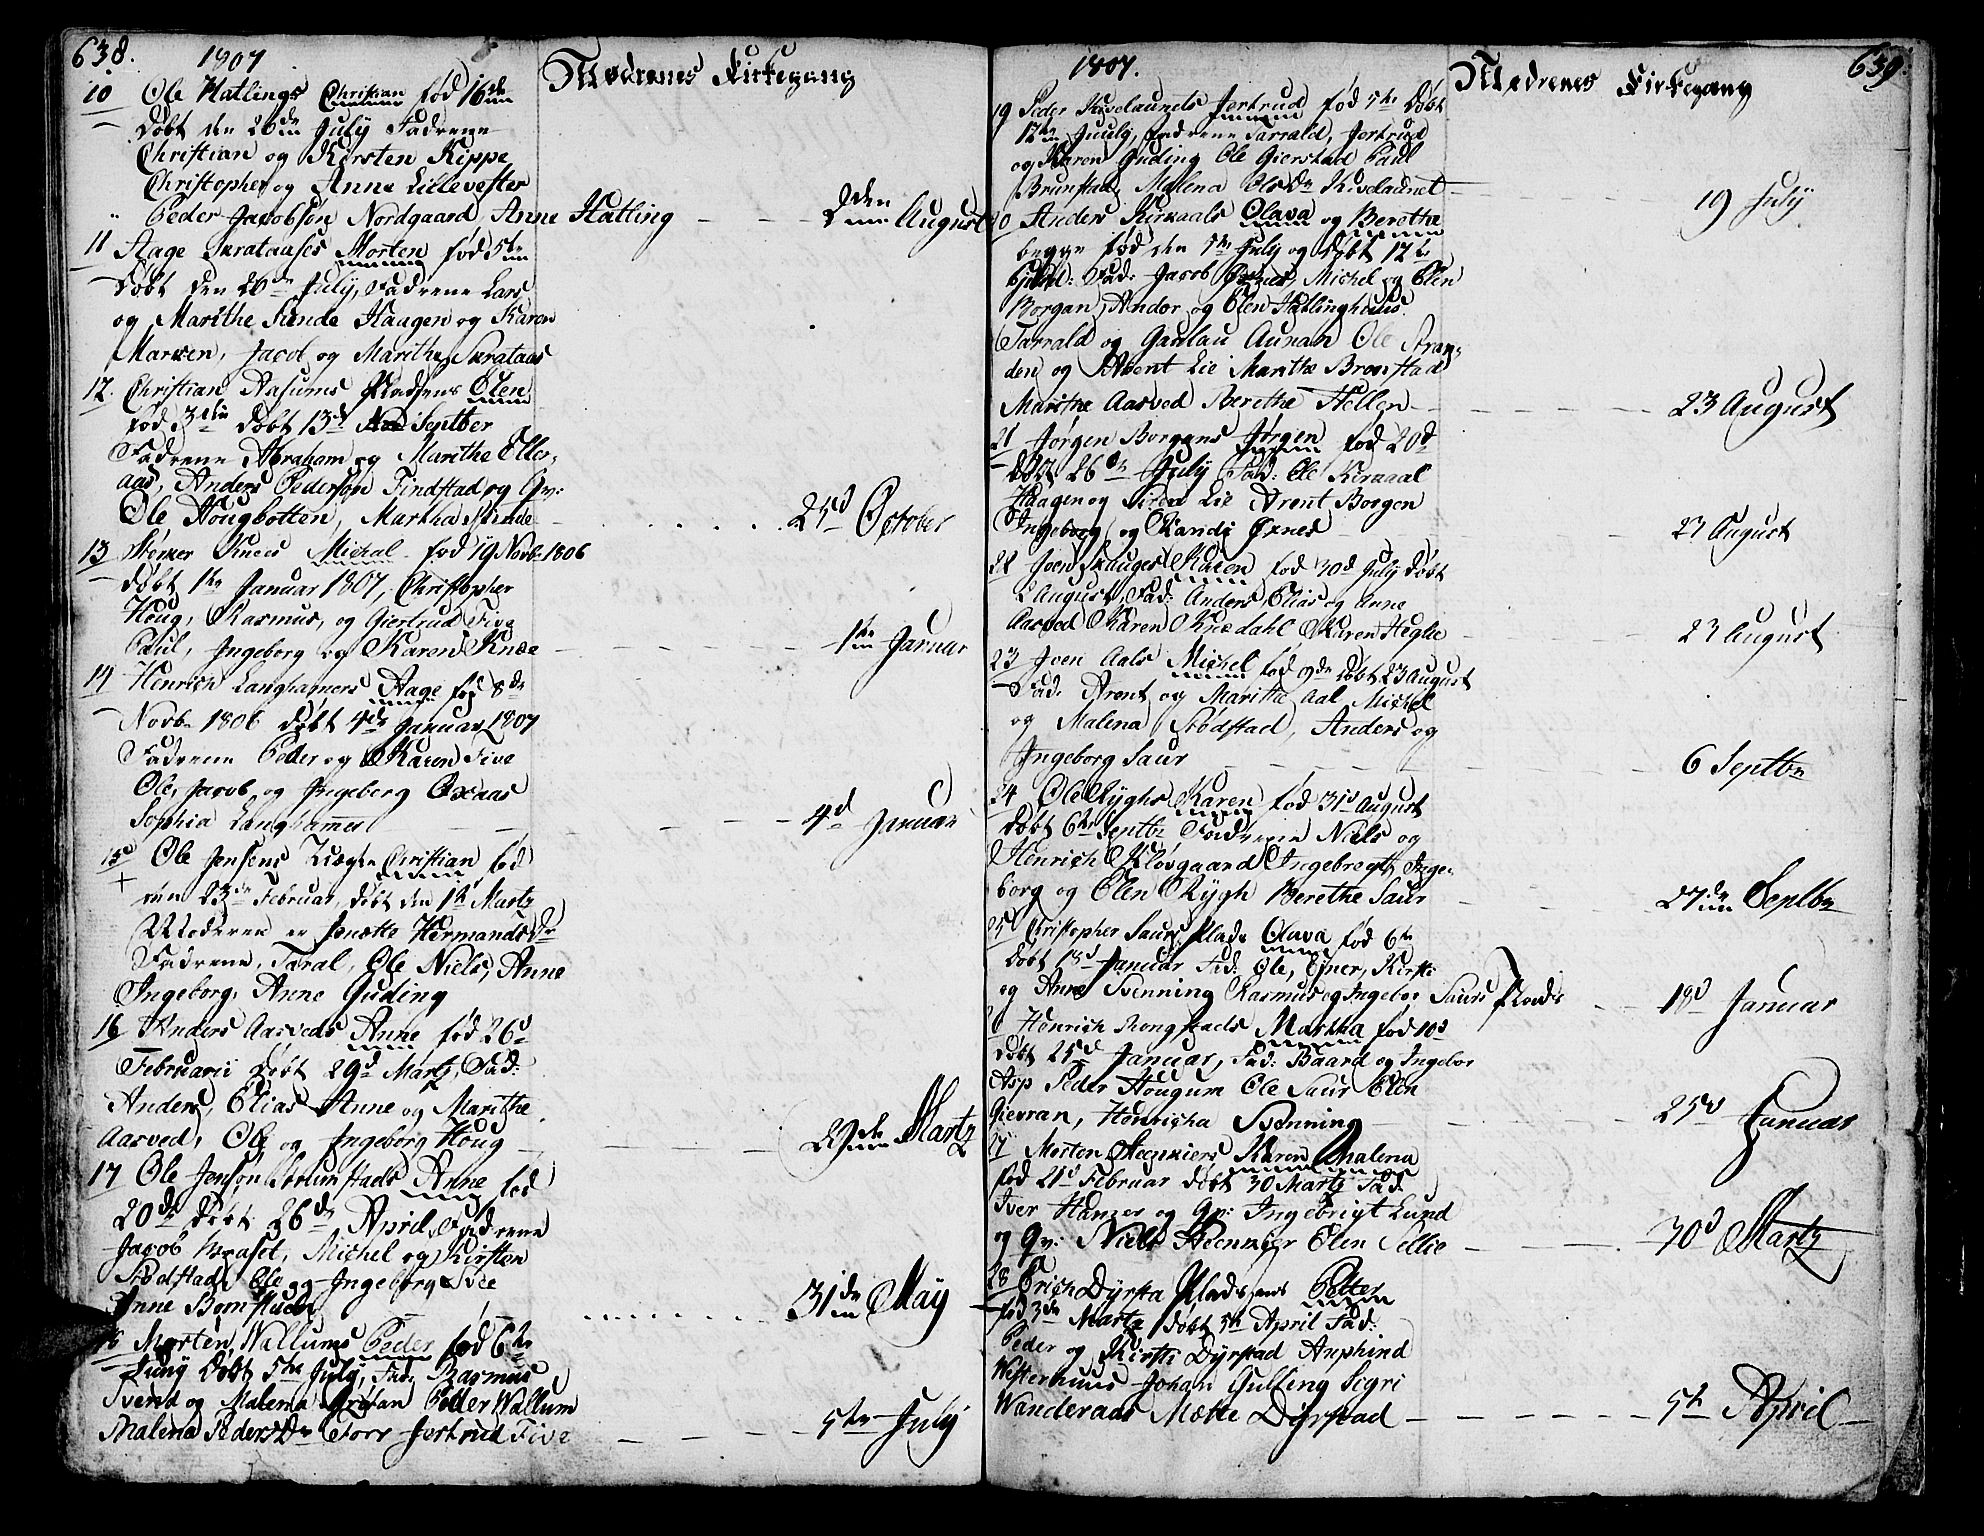 638.
1807
Mødrenes Kirkegang
10 Ole Hatlings Christian fød 16de
Døbt den 26de July Fadrene
Christian og Kirsten Kippe
Christopher og Anne Lillevester
Peder Jacobsøn Nordgaard, Anne Hatling - - - 2den August
11 Aage Skrataases Morten fød 5te
Døbt den 26de July, Fadrene Lars
og Marithe Kinde Haagen og Karen
Marken, Jacob og Marithe Skrataas
12. Christian Aasums Pladsens Olen
fød 3die Døbt 13de Septber
Fadrene Abraham og Marithe Eller-
aas, Anders Pedersøn Tindstad og Gv:
Ole Hougbotten, Martha Kinde - - - 25d October
13 Knees Michal fød 19 Novb. 1806
døbt 1te Januar 1807, Christopher
Houg, Rasmus, og Giertrud Five
Paul, Ingeborg og Karen Knee - - - 1te Januar
14 Henrich Langhamers Aage fød 8de
Novb. 1806 døbt 4de Januar 1807
Fadrene Peder og Karen Five
Ole, Jacob og Ingeborg Oxaas
Sophia Langhammer - - - 4d Januar
15d Ole Jensens Christian fød
den 23de Februar, døbt den 1te Martz
Moderen er Jenette Hermandsdr
Fadrene, Taral, Ole Niels, Anne
Ingeborg, Anne Guding
16 Anders Aasveds Anne fød 26d
Februarii Døbt 29d Martz, Fad:
Anders, Elias Anne og Marithe
Aasved, Ole og Ingeborg Houg - - - 29de Martz
17 Ole Jensøn Anne fød
20de Døbt 26de April, Fadrene
Jacob Michel og Kirsten
Stødstad, Ole og Ingeborg
Anne - - - 31de May
18 Morten Wallums Peder fød 6te
Juny Døbt 5te July, Fad: Rasmus
Svend og Malena Petter Wallum
Malena Pedersdr Jertrud Five - - - 5te July
639.
1807.
Mødrenes Kirkegang
19 Peder Kiselaunets Jertrud fød 5te Døbt
12te July, Fadrene Tarrald, Jertrud
og Karen Guding Ole Gierstad Paul
Brunstad, Malena Olsdr Kiselaunet - - - 19 July
Anders Kirkaals Olava og Berethe
begge fød den 5te July og Døbt 12te
Fad: Jacob Michel og Elen
Borgan, Andor og Elen Hatlinghuus
Tarrald og Aunan Ole Stran-
den og Arent Lie Marithe Bronstad
Marithe Aasved Berethe Hellen - - - 23 August
21 Jørgen Borgens Jørgen fød 20d
døbt 26de July Fad: Ole Kirkaal
Haagen og Siren Lie Arent Borgen
Ingeborg og Randi Oxnes - - - 23 August
22 Joen Skauges Karen fød 30d July døbt
2 August, Fad: Anders, Elias og Anne
Aasved Karen Karen Heglie - - - 23 August
23 Joen Aals Michel fød 9de Døbt 23 August
Fad: Arent og Marithe Aal Michel
og Malena Stødstad, Anders og
Ingeborg Saur - - - 6 Septbr
24 Ole Ryghs Karen fød 31d August
døbt 6te Septbr Fadrene Niels og
Henrich Kløvgaard Ingebregt, Inge-
borg og Elen Rygh Berethe Saur - - - 27de Septbr
25 Christopher Saurs Plads Olava fød 6te
Døbt 18d Januar Fad: Ole, Ejner, Kirsti
og Anne Svenning Rasmus og Ingebor Saurs Plads - - - 18d Januar
Henrich Rongstads Martha fød 10d
døbt 25d Januar, Fad: Baard og Ingebor
Asp Peder Hougum Ole Saur Elen
Gierran, Henricha Svenning - - - 25d Januar
27 Morten Karen Malena
fød 21d Februar døbt 30 Martz Fad:
Iver og Gv: Ingebrigt Lund
og Gv: Niels Elen - - - 30d Martz
28 Erich Dyrsta Pladsens Petter
fød 3de Martz døbt 5te April Fad:
Peder og Kirsti Dyrstad Arnphind
Westerhuus Johan Gulling Sigri
Wanderaas Mette Dyrstad - - - 5te April